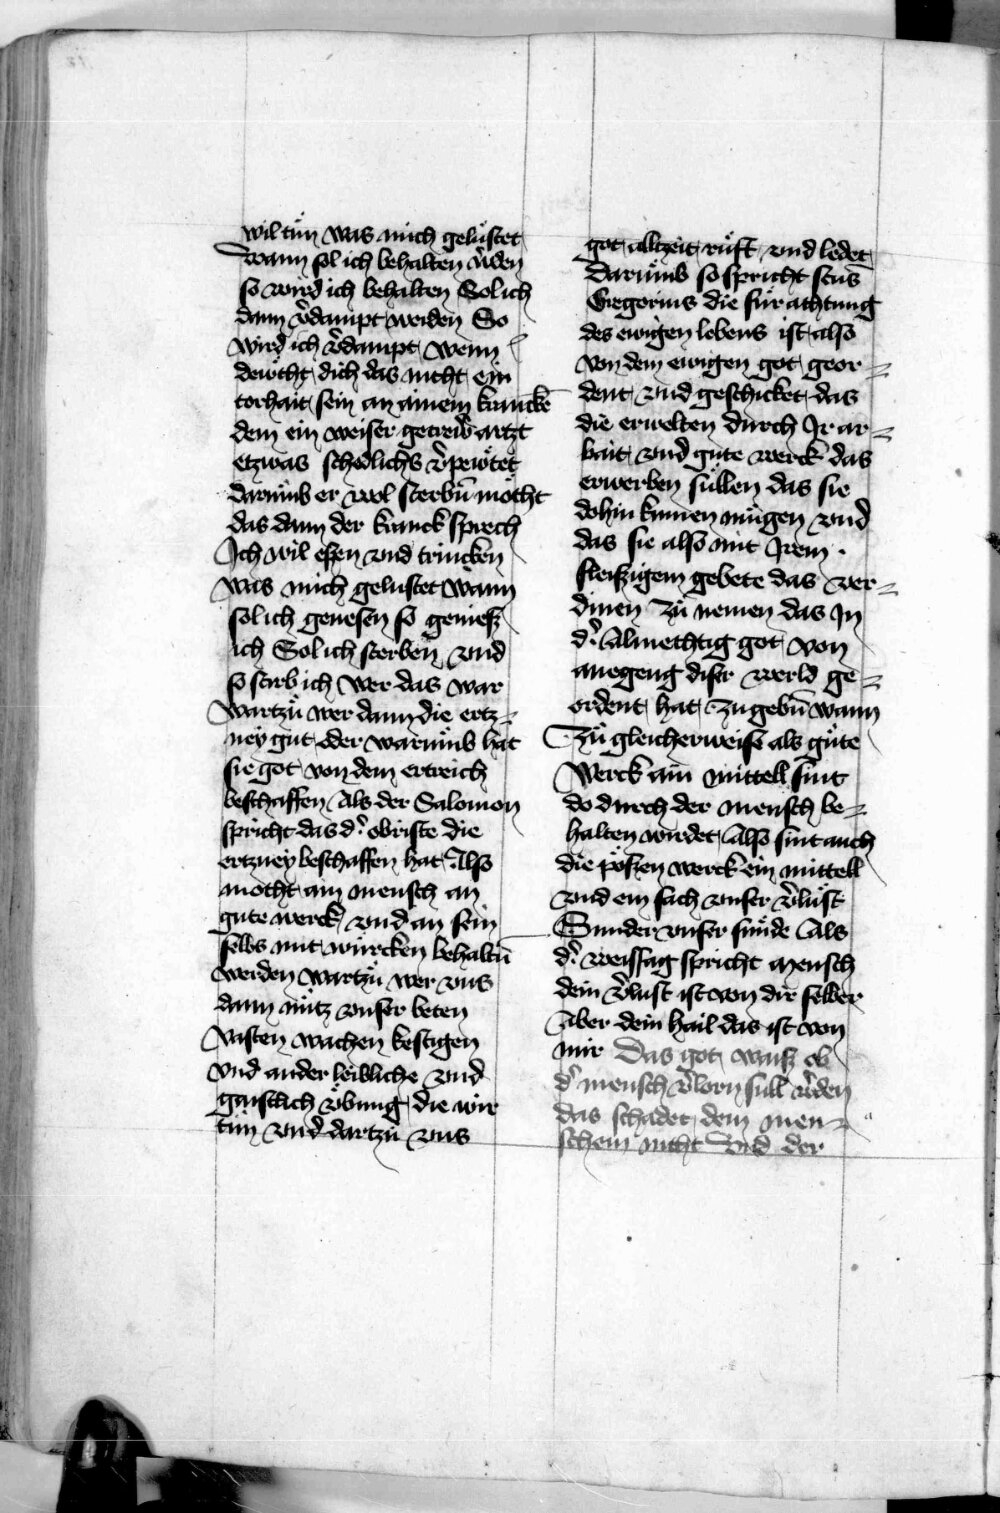 wil tůn was mich gelüstet
Wann sol ich behalten w̉den
so wird ich behalten Sol ich
dann v̉dampt werden So
wird ich v̉dampt wenn
dewcht dich das nicht ein
torhait sein an ainem kranckē
dem ein weiser getrewr̉ artzt
etzwas schedlichs v̉pewtet
darumb er wol sterbn̄ möcht
das dann der kranck sprech
Ich wil essen vnd trincken
was mich gelustet Wann
sol ich genesen so geniesz
ich Sol ich sterben vnd
so starb ich Wer das war
Wartzů wer dann die ertz=
ney gut oder warumb hat
sie got von dem ertreich
beschaffen Als der Salomon
spricht das d̉ obriste die
ertzney beschaffen hat Also
mocht ain mensch an
gute werck vnd an sein
selbs mit würcken behaltn̄
werden Wartzů wer vns
dann nütz vnser beten
Vasten wachen kestigen
vnd ander leibliche vnd
gaistlich vbung die wir
tůn vnd dartzů vns
got alltzeit růft vnd ledet
Darumb so spricht scūs
Gregorius die für achtung
des ewigen lebens ist also
von dem ewigen got geor=
dent vnd geschicket das
die erwelten durch Ir ar=
bait vnd gute werck das
erwerben süllen das sie
dohin kumen mügen vnd
das sie also mit Irem
fleiszigem gebete das ver=
dinen zů nemen das In
d̉ Almechtig got von
anegeng diser werld ge=
ordent hat zu gebn̄ wann
Zů gleicherweise als gůte
Werck ain mittell sint
do durch der mensch be=
halten wirdet Also sint auch
die pöszen werck ein mittell
vnd ein sach vnser v̉lust
Sunder vnser sünde Als
d̉ weissag spricht mensch
dein v̉lust ist von dir selber
Aber dein hail das ist von
mir Das got waisz ob
d̉ mensch v̉lorn sull w̉den
das schadet dem men=
schenn nicht Vnd der